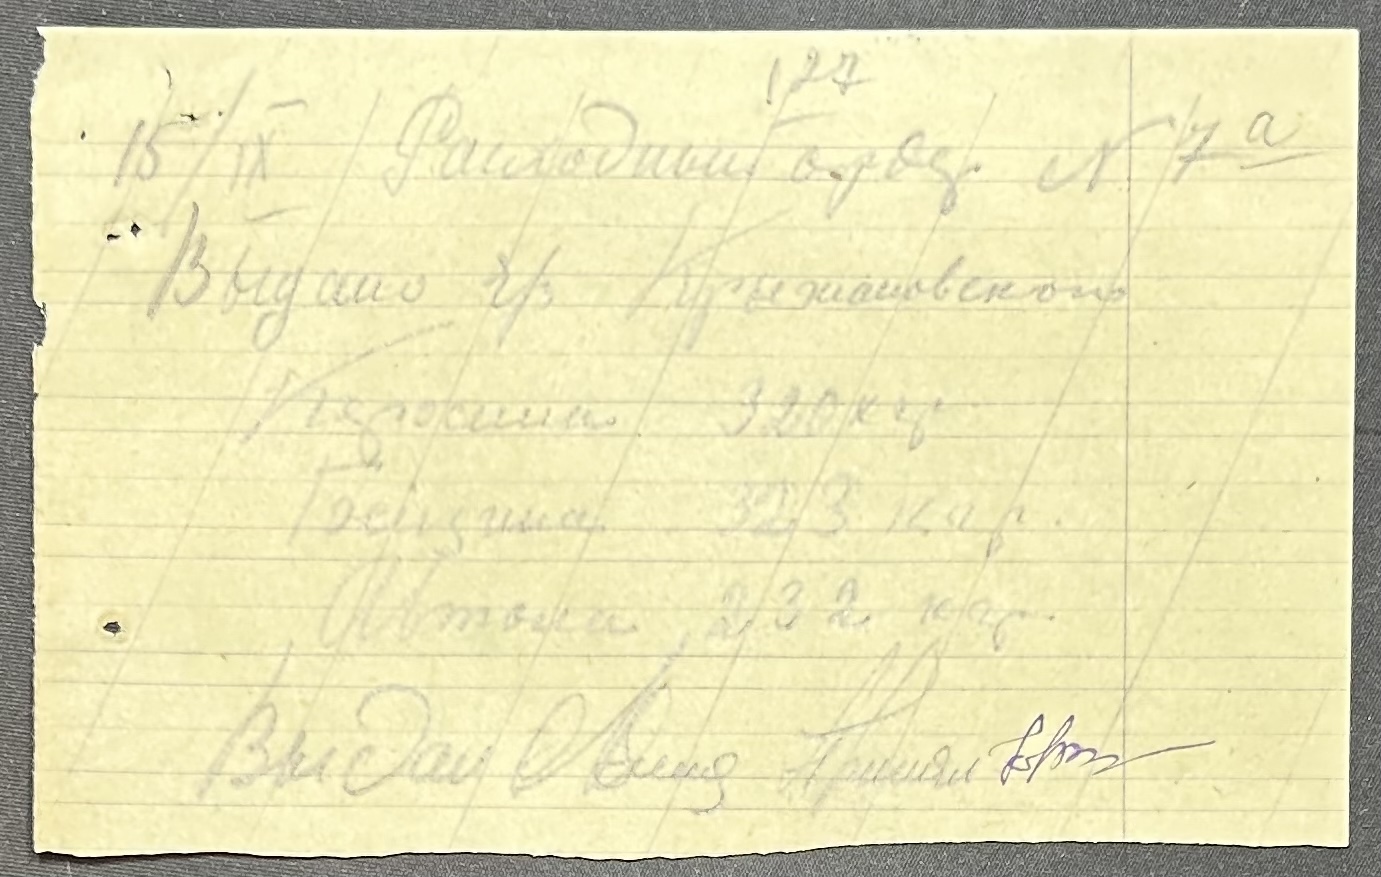 127
15/IX Расходный ордер N 7а
Выдано гр Крыжановскому
Керосина 320 кгр
Бензина 323 кгр.
Автола 232 кгр.
Выдал Принял